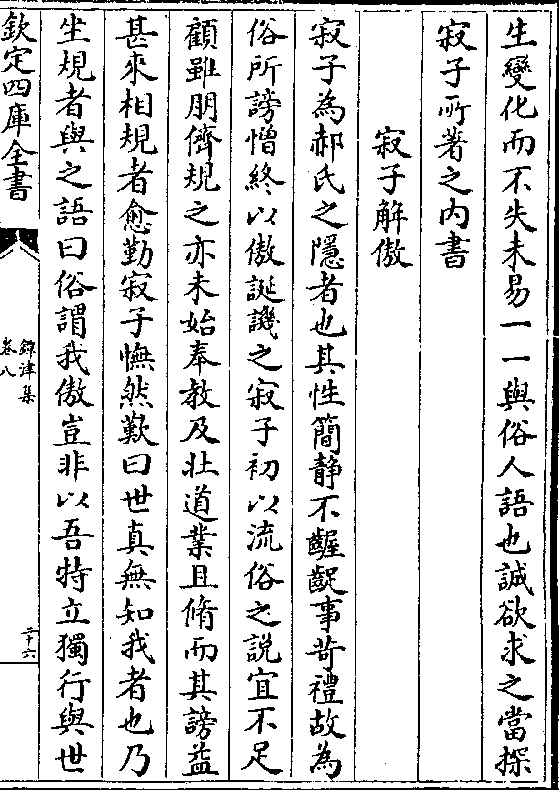 生變化而不失未易一一與俗人語也誠欲求之當探
寂子所著之内書
寂子解傲
寂子為郝氏之隱者也其性簡静不齷齪事苛禮故為
俗所謗憎終以傲誕譏之寂子初以流俗之說宜不足
顧雖朋儕規之亦未始奉教及壮道業且脩而其謗益
甚來相規者愈勤寂子憮然歎曰世真無知我者也乃
坐規者與之語曰俗謂我傲豈非以吾特立獨行與世
欽定四庫全書
鐔津集
卷八
二十六